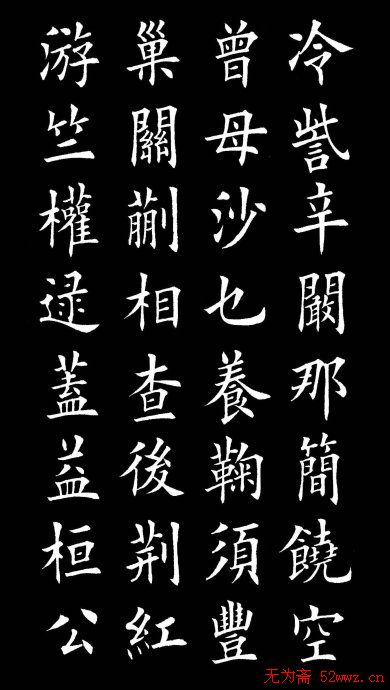 冷訾辛闞那簡饒空
曾母沙乜養鞠須豐
巢關蒯相查後荆紅
游竺權逯蓋益桓公
无为斋 52wwz.cn